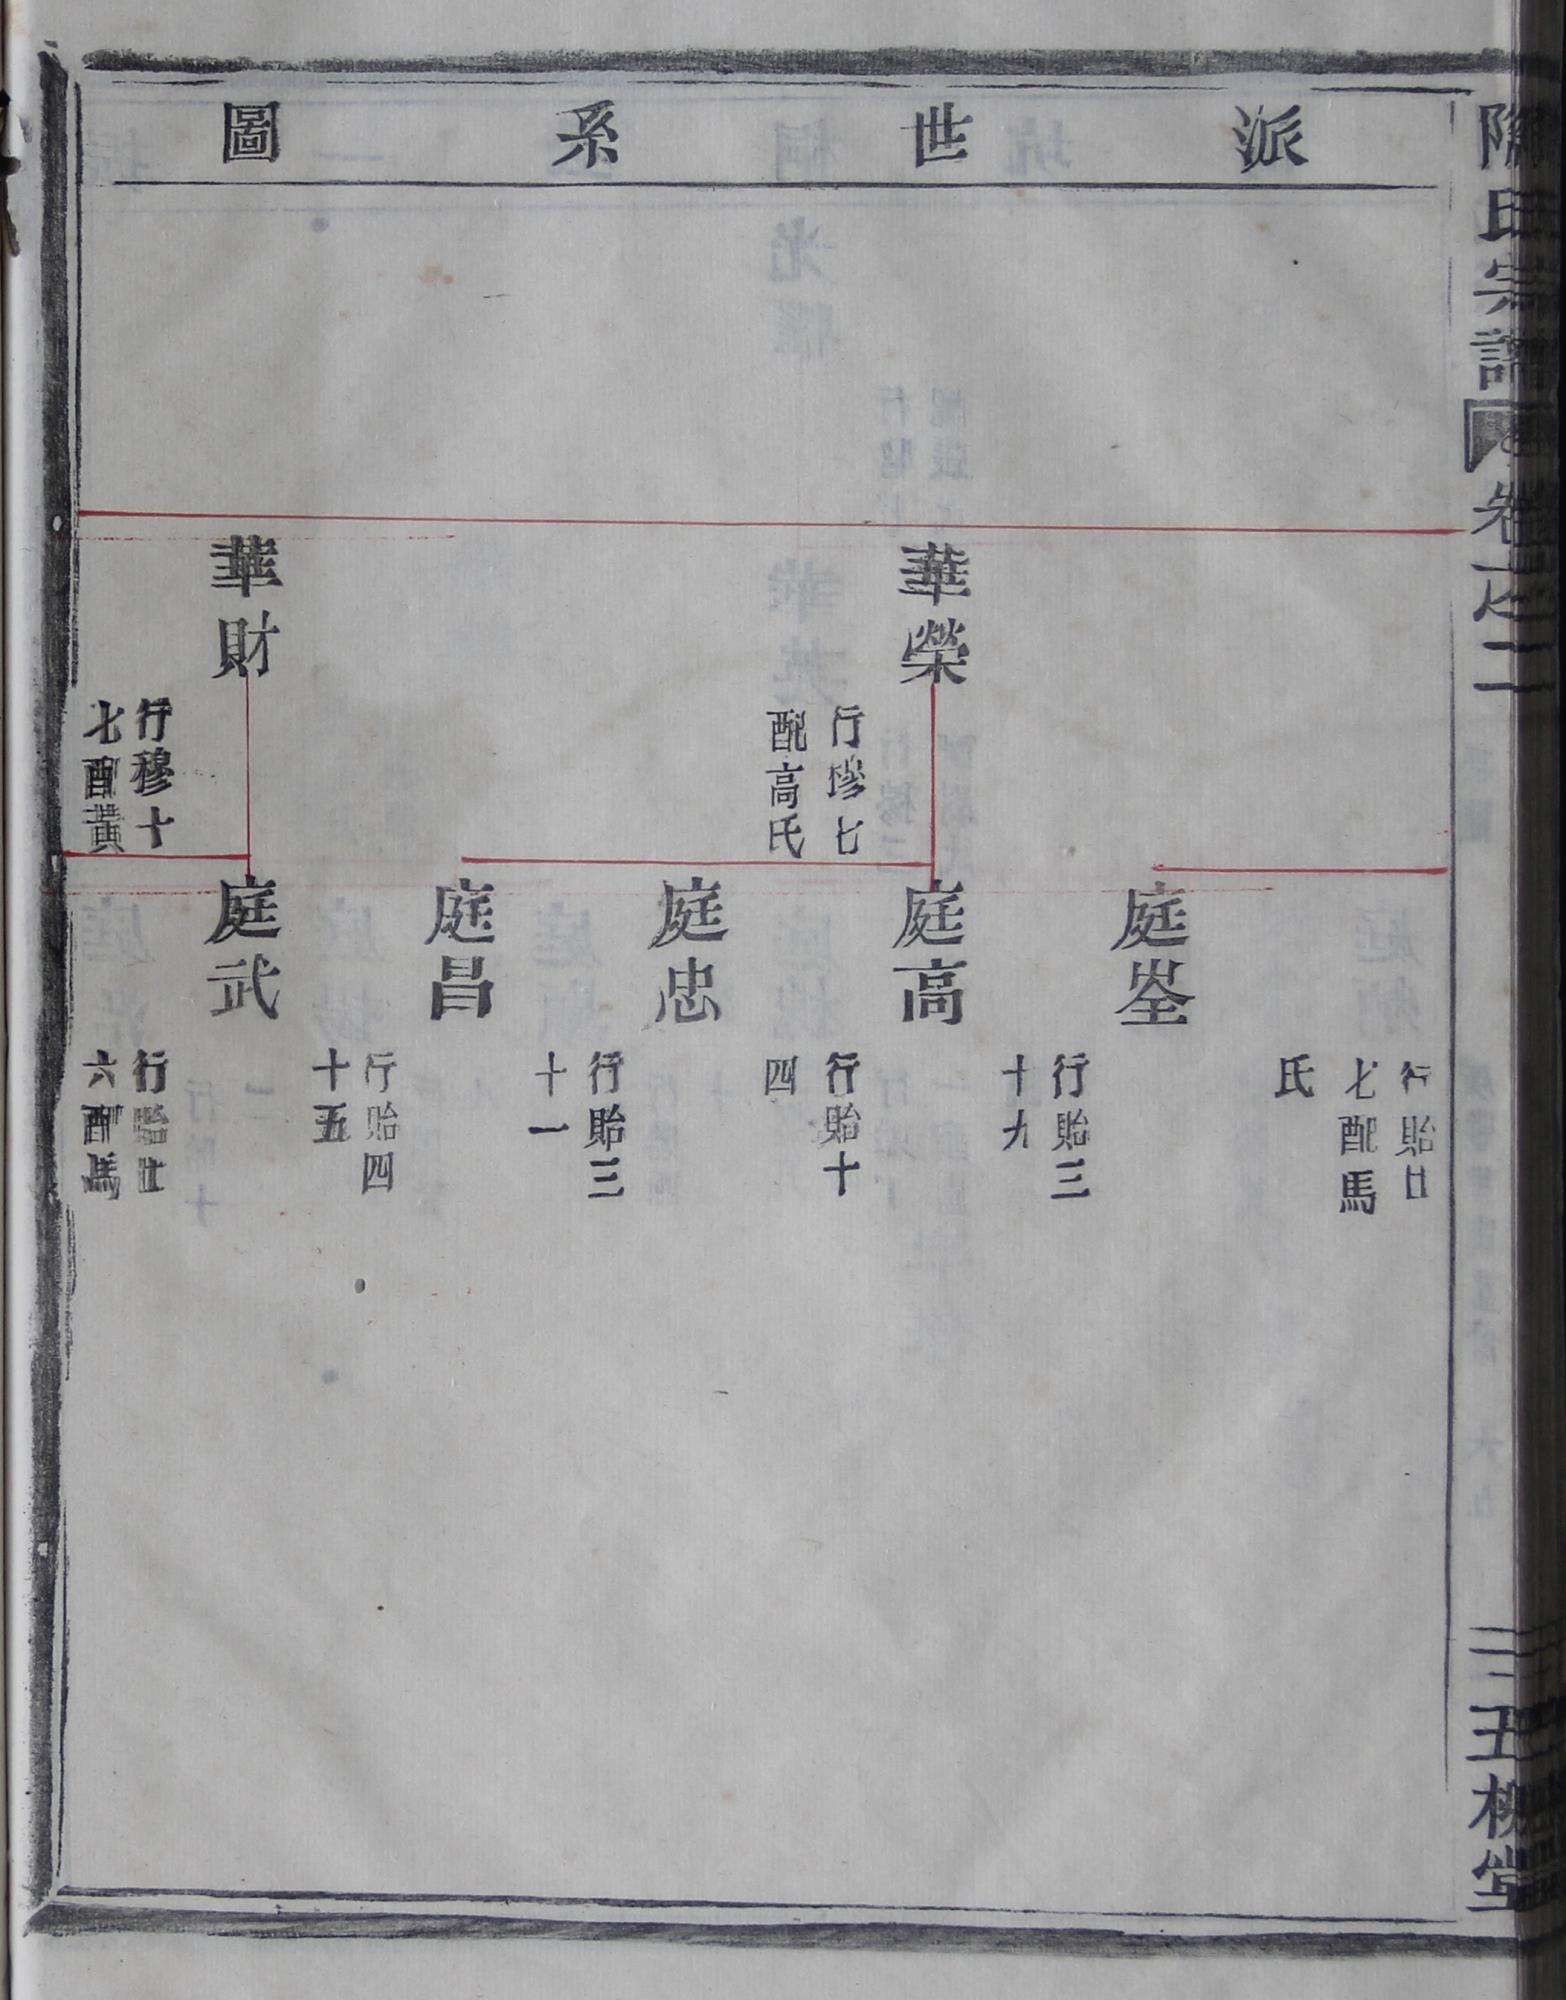 陶氏宗譜
卷之二
五柳堂
派世系圖
行貽廿
七配馬
氏
庭崟
行貽三
十九
華榮
行穆七
配高氏
庭高
行貽十
四
庭忠
行貽三
十一
庭昌
行貽四
十五
華財
行穆十
七配黃
庭武
行貽廿
六配馬